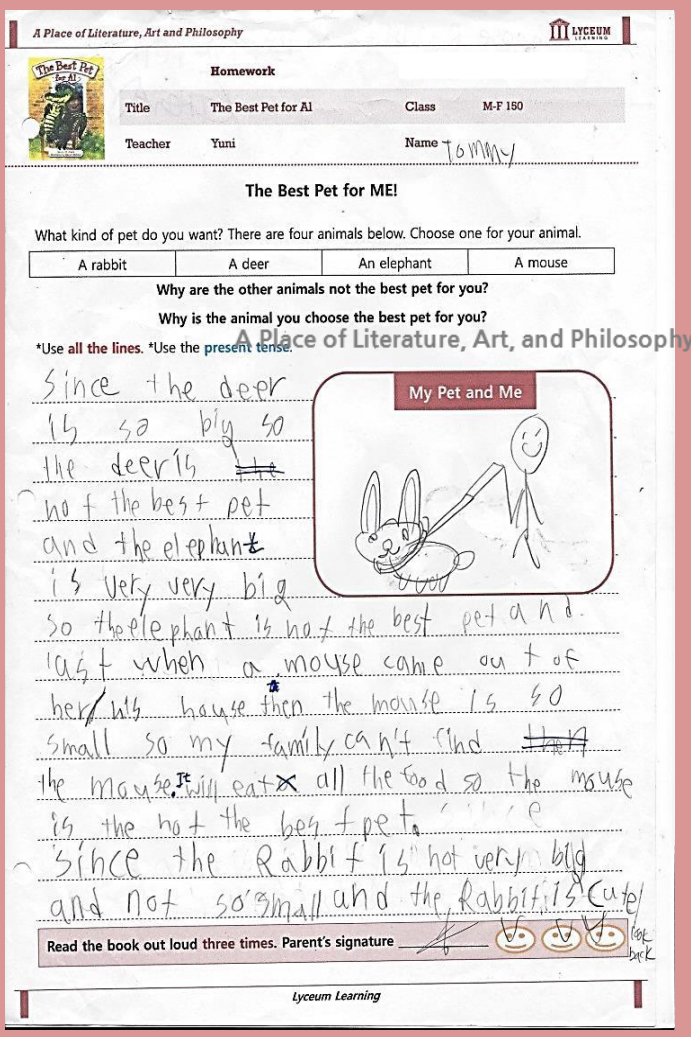 A Place of Literature, Art and Philosophy
LYCEUM
LEARNING
The Best Pet
for Al
Homework
Title The Best Pet for Al Class M-F 150
Teacher Yuni Name Tommy
The Best Pet for ME!
What kind of pet do you want? There are four animals below. Choose one for your animal.
A rabbit A deer An elephant A mouse
Why are the other animals not the best pet for you?
Why is the animal you choose the best pet for you?
A Place of Literature, Art, and Philosophy
*Use all the lines. *Use the present tense.
My Pet and Me
Since the deer
is so big so
the deer is the
not the best pet
and the elephant
is very very big
so the elephant is not the best pet and
last when a mouse came out of
her/his house then the mouse is so
small so my family can't find then
the mouse. It will eat all the food so the mouse
is the not the best pet.
Since the Rabbit is not very big
and not so small and the Rabbit is cute/
look
back
Read the book out loud three times. Parent's signature
Lyceum Learning